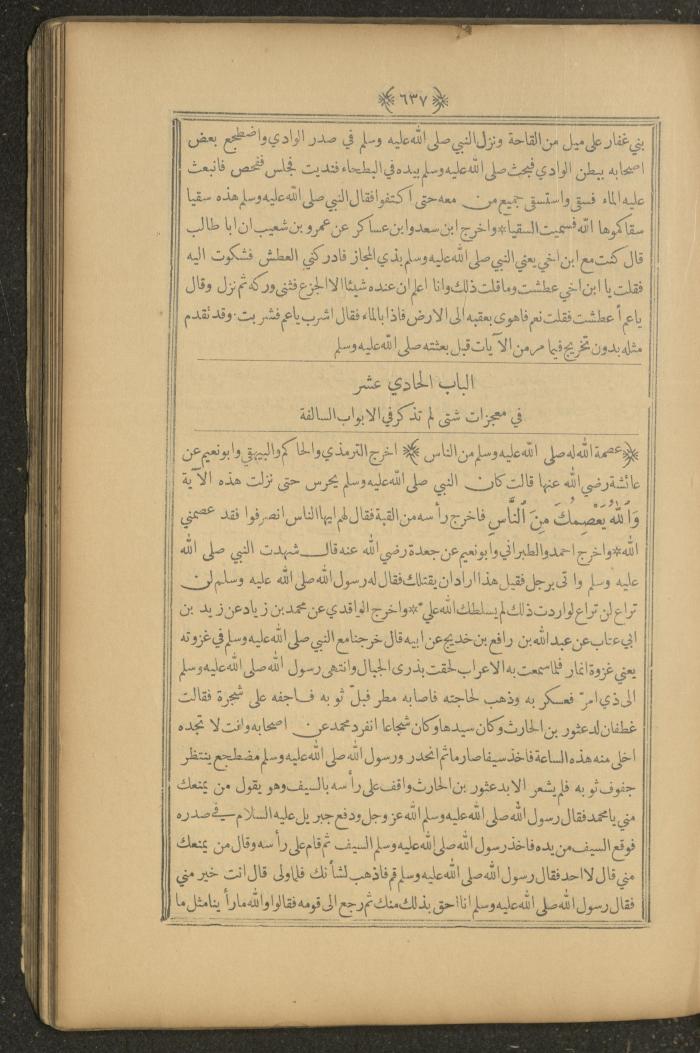 ﴿٦٣٧﴾
بني غفار على ميل من القاحة ونزل النبي صلى الله عليه وسلم في صدر الوادي واضطجع بعض
اصحابه ببطن الوادي فبحث صلى الله عليه وسلم بيده في البطحاء فنديت فجلس ففحص فانبعث
عليه الماء فسقى واستسقى جميع من معه حتى اكتفوا فقال النبي صلى الله عليه وسلم هذه سقيا
سقاكموها الله فسميت السقيا * واخرج ابن سعد وابن عساكر عن عمرو بن شعيب ان ابا طالب
قال كنت مع ابن اخي يعني النبي صلى الله عليه وسلم بذي المجاز فادركني العطش فشكوت اليه
فقلت يا ابن اخي عطشت وما قلت ذلك وانا اعلم ان عنده شيئا الا الجزع فثنى وركه ثم نزل وقال
يا عم أ عطشت فقلت نعم فاهوى بعقبه الى الارض فاذا بالماء فقال اشرب يا عم فشربت . وقد تقدم
مثله بدون تخريج فيما مر من الآيات قبل بعثته صلى الله عليه وسلم
الباب الحادي عشر
في معجزات شتى لم تذكر في الابواب السالفة
﴿عصمة الله له صلى الله عليه وسلم من الناس﴾ اخرج الترمذي والحاكم والبيهقي وابو نعيم عن
عائشة رضي الله عنها قالت كان النبي صلى الله عليه وسلم يحرس حتى نزلت هذه الآية
وَٱللَّهُ يَعْصِمُكَ مِنَ ٱلنَّاسِ فاخرج رأسه من القبة فقال لهم ايها الناس انصرفوا فقد عصمني
الله * واخرج احمد والطبراني وابو نعيم عن جعدة رضي الله عنه قال شهدت النبي صلى الله
عليه وسلم واتى برجل فقيل هذا اراد ان يقتلك فقال له رسول الله صلى الله عليه وسلم لن
تراع لن تراع لو اردت ذلك لم يسلطك الله عليّ * واخرج الواقدي عن محمد بن زياد عن زيد بن
ابي عتاب عن عبد الله بن رافع بن خديج عن ابيه قال خرجنا مع النبي صلى الله عليه وسلم في غزوته
يعني غزوة انمار فلما سمعت به الاعراب لحقت بذرى الجبال وانتهى رسول الله صلى الله عليه وسلم
الى ذي امرّ فعسكر به وذهب لحاجته فاصابه مطر فبلّ ثوبه فاجفه على شجرة فقالت
غطفان لدعثور بن الحارث وكان سيدها وكان شجاعا انفرد محمد عن اصحابه وانت لا تجده
اخلى منه هذه الساعة فاخذ سيفا صارما ثم انحدر ورسول الله صلى الله عليه وسلم مضطجع ينتظر
جفوف ثوبه فلم يشعر الا بدعثور بن الحارث واقف على رأسه بالسيف وهو يقول من يمنعك
مني يا محمد فقال رسول الله صلى الله عليه وسلم الله عز وجل ودفع جبريل عليه السلام في صدره
فوقع السيف من يده فاخذ رسول الله صلى الله عليه وسلم السيف ثم قام على رأسه وقال من يمنعك
مني قال لا احد فقال رسول الله صلى الله عليه وسلم قم فاذهب لشأنك فلما ولى قال انت خير مني
فقال رسول الله صلى الله عليه وسلم انا احق بذلك منك ثم رجع الى قومه فقالوا والله ما رأينا مثل ما